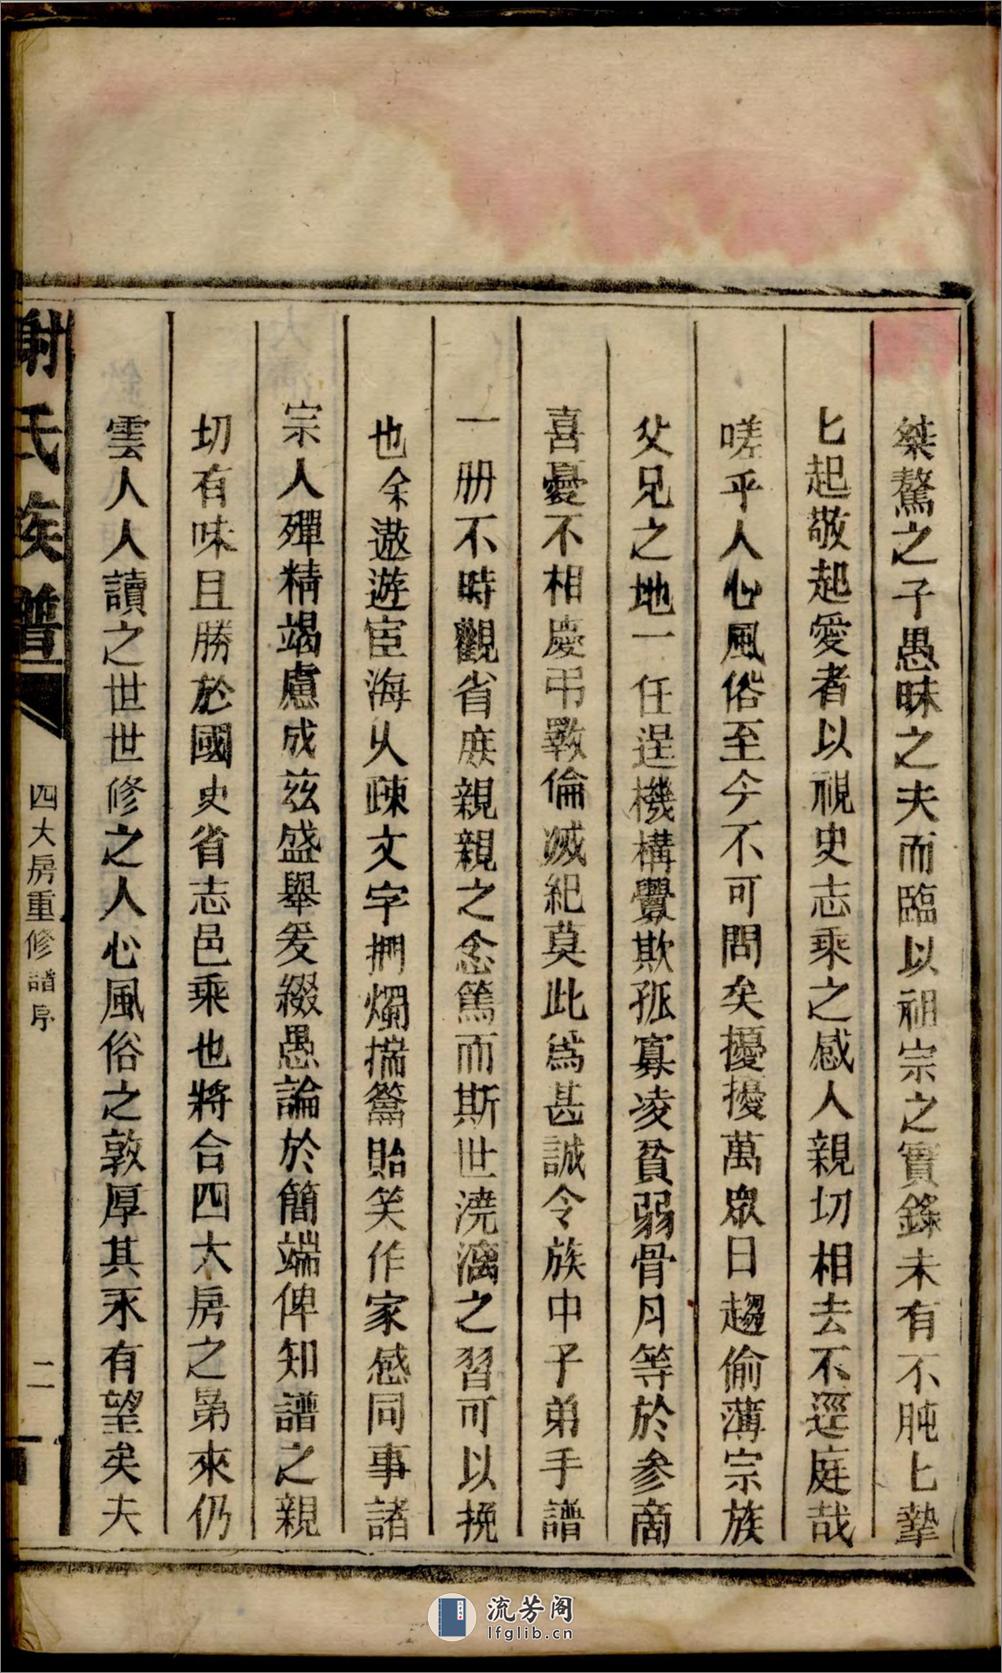 桀驁之子愚昧之夫而臨以祖宗之實錄未有不肫匕摯
匕起敬起愛者以視史志乘之感人親切相去不逕庭哉
嗟乎人心風俗至今不可問矣擾擾萬眾日趨偷薄宗族
父兄之地一任逞機構釁欺孤寡凌貧弱骨月等於參商
喜憂不相慶弔斁倫滅紀莫此為甚誠令族中子弟手譜
一册不時觀省庶親親之念篤而斯世澆漓之習可以挽
也余遨遊宦海乆疎文字捫燭揣籥貽笑作家感同事諸
宗人殫精竭慮成兹盛舉爰綴愚論於簡端俾知譜之親
切有味且勝於國史省志邑乘也將合四大房之昴來仍
雲人人讀之世世修之人心風俗之敦厚其永有望矣夫
謝氏族譜
四大房重修譜序
二
流芳阁
lfglib.cn